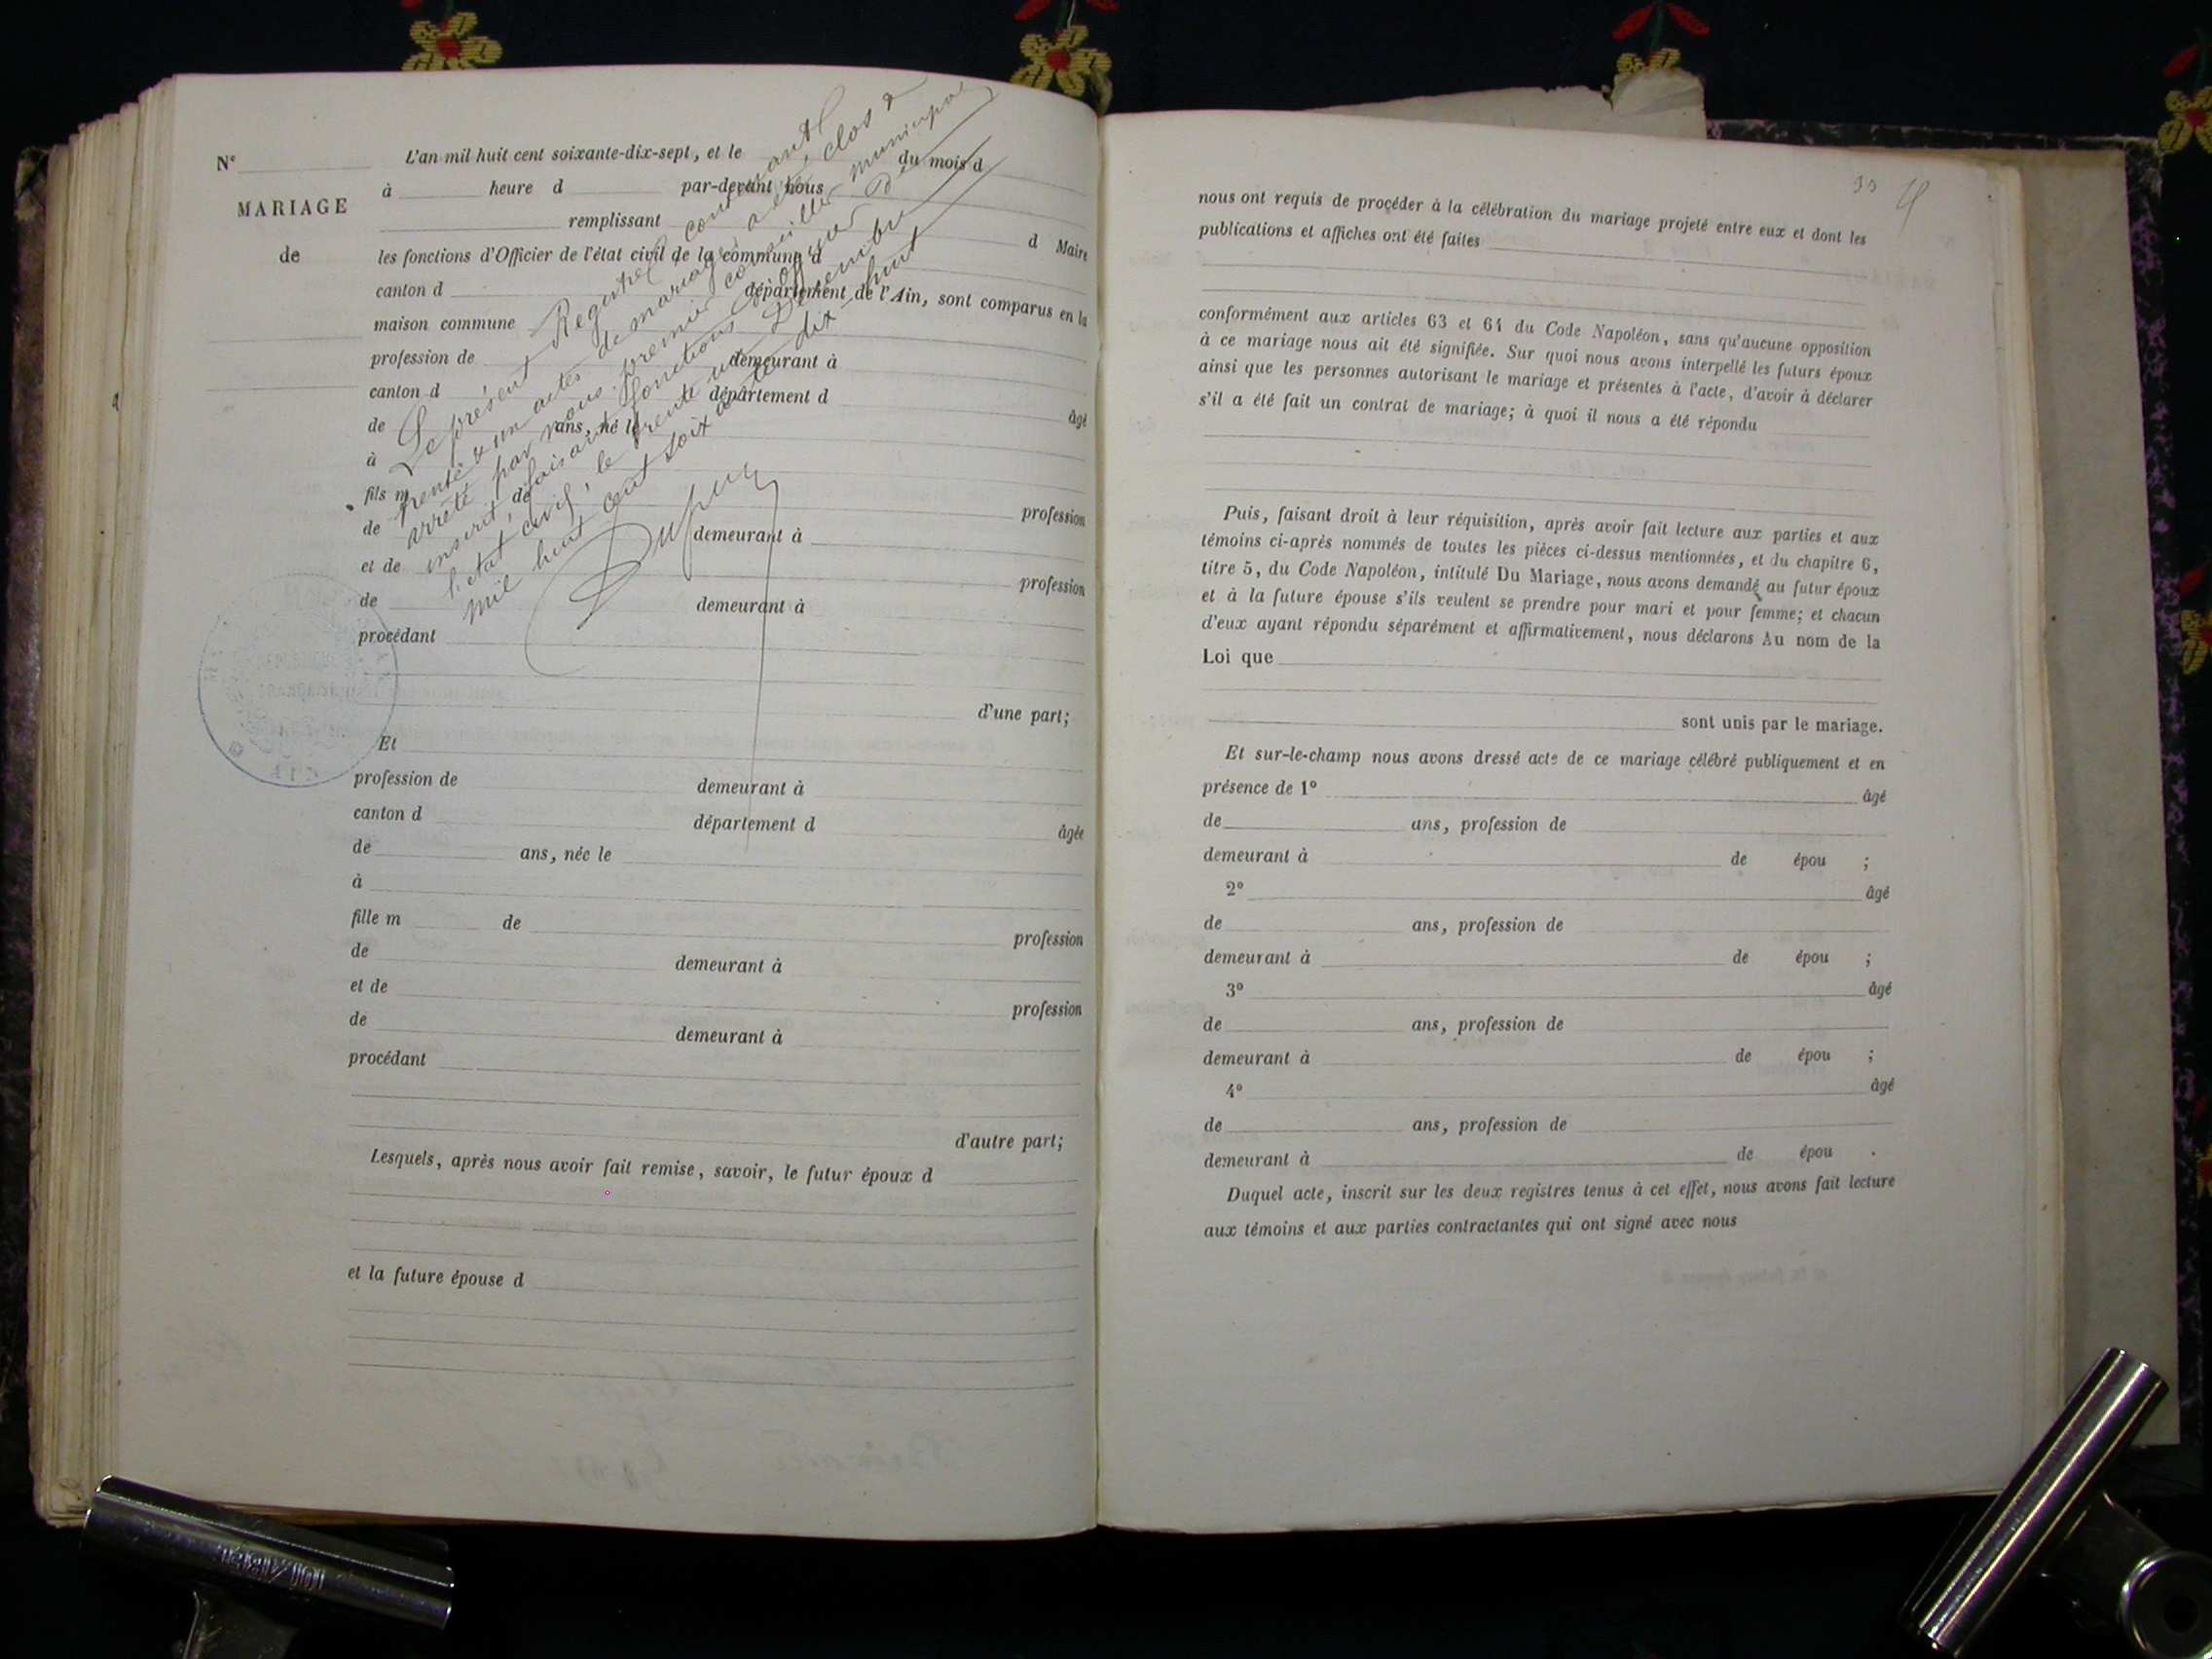 N°
MARIAGE
de
L'an mil huit cent soixante-dix-sept, et le du mois d
à heure d par-devant nous
remplissant
d Maire
les fonctions d'Officier de l'état civil de la commune d
canton d département de l'Ain, sont comparus en la
maison commune
profession de demeurant à
canton d département d
âgé
de ans, né le
à
fils m de
profession
de demeurant à
et de
profession
de demeurant à
procédant
d'une part;
Et
profession de demeurant à
canton d département d
âgée
de ans, née le
à
fille m de
profession
de demeurant à
et de
profession
de demeurant à
procédant
d'autre part;
Lesquels, après nous avoir fait remise, savoir, le futur époux d
et la future épouse d
Le présent Registre contenant
trente & un actes de mariage, a été clos &
arrêté par nous premier conseiller municipal
inscrit, faisant fonctions d'officier de
l'état civil, le trente un Décembre
mil huit cent soixante dix-huit
Dupuy
nous ont requis de procéder à la célébration du mariage projeté entre eux et dont les
publications et affiches ont été faites
conformément aux articles 63 et 64 du Code Napoléon, sans qu'aucune opposition
à ce mariage nous ait été signifiée. Sur quoi nous avons interpellé les futurs époux
ainsi que les personnes autorisant le mariage et présentes à l'acte, d'avoir à déclarer
s'il a été fait un contrat de mariage; à quoi il nous a été répondu
Puis, faisant droit à leur réquisition, après avoir fait lecture aux parties et aux
témoins ci-après nommés de toutes les pièces ci-dessus mentionnées, et du chapitre 6,
titre 5, du Code Napoléon, intitulé Du Mariage, nous avons demandé au futur époux
et à la future épouse s'ils veulent se prendre pour mari et pour femme; et chacun
d'eux ayant répondu séparément et affirmativement, nous déclarons Au nom de la
Loi que
sont unis par le mariage.
Et sur-le-champ nous avons dressé acte de ce mariage célébré publiquement et en
présence de 1° âgé
de ans, profession de
demeurant à de épou ;
2° âgé
de ans, profession de
demeurant à de épou ;
3° âgé
de ans, profession de
demeurant à de épou ;
4° âgé
de ans, profession de
demeurant à de épou .
Duquel acte, inscrit sur les deux registres tenus à cet effet, nous avons fait lecture
aux témoins et aux parties contractantes qui ont signé avec nous